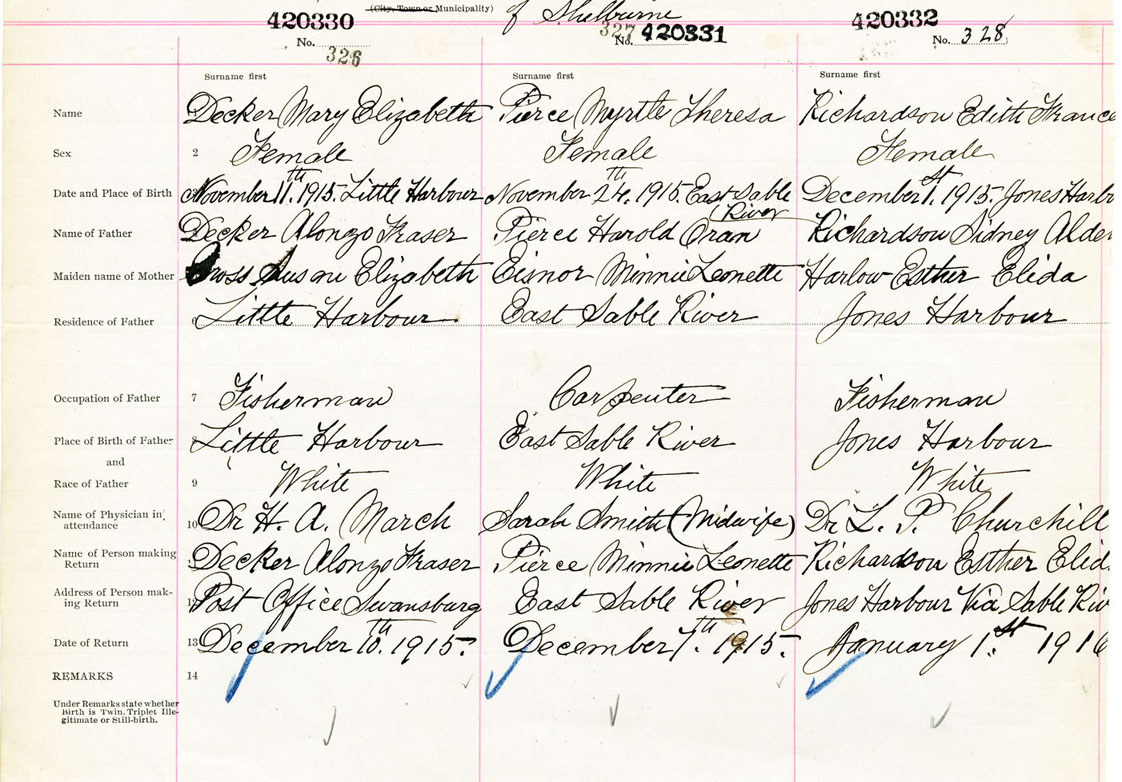 (City, Town or Municipality) of Shelburne
420330 327 420331 420332
No. 326 No. No. 328
Surname first Surname first Surname first
Name Decker Mary Elizabeth Pierce Myrtle Theresa Richardson Edith France
Sex 2 Female Female Female
Date and Place of Birth November 11th. 1915. Little Harbour November 24th. 1915. East Sable River December 1st. 1915. Jones Harbo
Name of Father Decker Alonzo Fraser Pierce Harold Oran Richardson Sidney Alder
Maiden name of Mother Elizabeth Eisnor Minnie Leonette Harlow Esther Elida
Residence of Father 6 Little Harbour East Sable River Jones Harbour
Occupation of Father 7 Fisherman Carpenter Fisherman
Place of Birth of Father 8 Little Harbour East Sable River Jones Harbour
and
Race of Father 9 White White White
Name of Physician in attendance 10 Dr H. A. March Sarah Smith (Midwife) Dr L. P. Churchill
Name of Person making Return Decker Alonzo Fraser Pierce Minnie Leonette Richardson Esther Elid
Address of Person making Return Post Office Swansburg East Sable River Jones Harbour Via Sable Riv
Date of Return 13 December 10th. 1915. December 7th. 1915. January 1st. 1916
REMARKS 14
Under Remarks state whether
Birth is Twin, Triplet Ille-
gitimate or Still-birth.